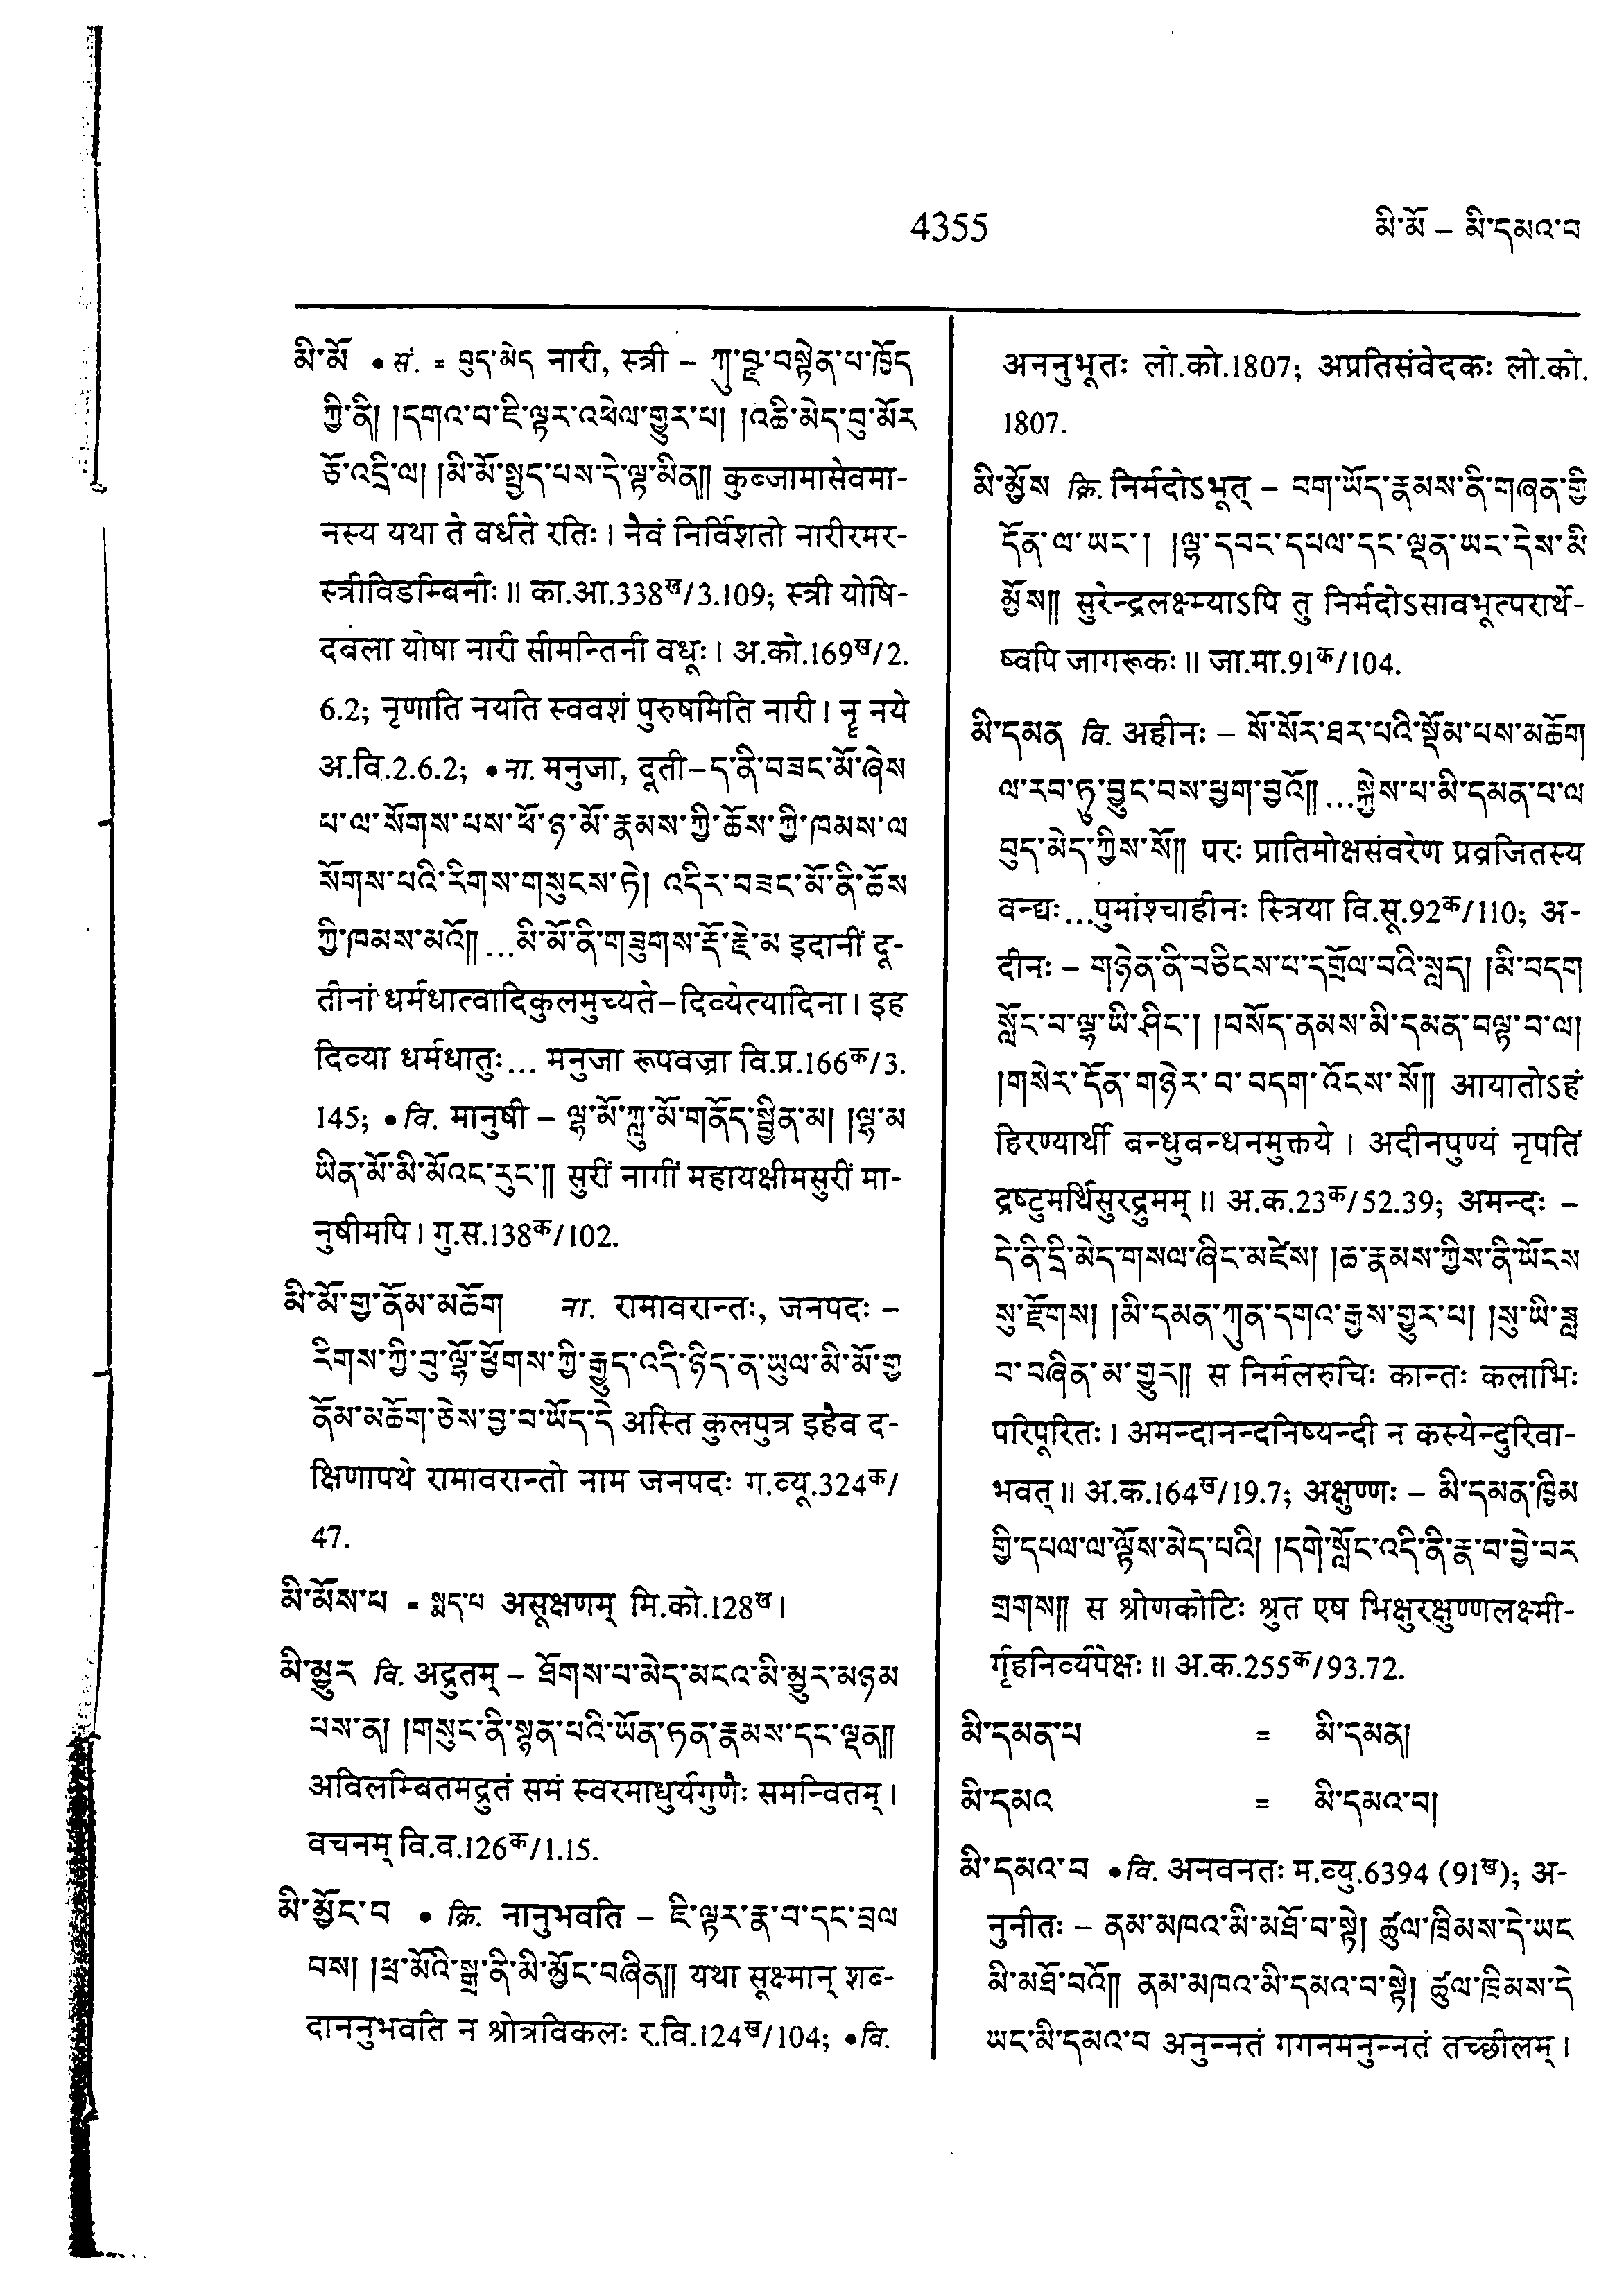 4355
མི་མོ – མི་དམའ་བ
མི་མོ • सं. = བུད་མེད नारी, स्त्री – ཀུ་བྫ་བསྟེན་པ་ཁྱོད
ཀྱི་ནི། །དགའ་བ་ཇི་ལྟར་འཕེལ་གྱུར་པ། །འཆི་མེད་བུ་མོར
ཅོ་འདྲི་ལ། །མི་མོ་སྤྱད་པས་དེ་ལྟ་མིན།། कुब्जामासेवमा-
नस्य यथा ते वर्धते रतिः। नैवं निर्विशतो नारीरमर-
स्त्रीविडम्बिनीः॥ का.आ.338ख/3.109; स्त्री योषि-
दबला योषा नारी सीमन्तिनी वधूः। अ.को.169ख/2.
6.2; नृणाति नयति स्ववशं पुरुषमिति नारी। नॄ नये
अ.वि.2.6.2; • ना. मनुजा, दूती–ད་ནི་བཟང་མོ་ཞེས
པ་ལ་སོགས་པས་ཕོ་ཉ་མོ་རྣམས་ཀྱི་ཆོས་ཀྱི་ཁམས་ལ
སོགས་པའི་རིགས་གསུངས་ཏེ། འདིར་བཟང་མོ་ནི་ཆོས
ཀྱི་ཁམས་མའོ།། ...མི་མོ་ནི་གཟུགས་རྡོ་རྗེ་མ इदानीं दू-
तीनां धर्मधात्वादिकुलमुच्यते–दिव्येत्यादिना। इह
दिव्या धर्मधातुः... मनुजा रूपवज्रा वि.प्र.166क/3.
145; • वि. मानुषी – ལྷ་མོ་ཀླུ་མོ་གནོད་སྦྱིན་མ། །ལྷ་མ
ཡིན་མོ་མི་མོའང་རུང་།། सुरीं नागीं महायक्षीमसुरीं मा-
नुषीमपि। गु.स.138क/102.
མི་མོ་གྱ་ནོམ་མཆོག ना. रामावरान्तः, जनपदः –
རིགས་ཀྱི་བུ་ལྷོ་ཕྱོགས་ཀྱི་རྒྱུད་འདི་ཉིད་ན་ཡུལ་མི་མོ་གྱ
ནོམ་མཆོག་ཅེས་བྱ་བ་ཡོད་དེ अस्ति कुलपुत्र इहैव द-
क्षिणापथे रामावरान्तो नाम जनपदः ग.व्यू.324क/
47.
མི་མོས་པ = སྨད་པ असूक्षणम् मि.को.128ख।
མི་མྱུར वि. अद्रुतम् – ཐོགས་པ་མེད་མངའ་མི་མྱུར་མཉམ
པས་ན། །གསུང་ནི་སྙན་པའི་ཡོན་ཏན་རྣམས་དང་ལྡན།།
अविलम्बितमद्रुतं समं स्वरमाधुर्यगुणैः समन्वितम्।
वचनम् वि.व.126क/1.15.
མི་མྱོང་བ • क्रि. नानुभवति – ཇི་ལྟར་རྣ་བ་དང་བྲལ
བས། །ཕྲ་མོའི་སྒྲ་ནི་མི་མྱོང་བཞིན།། यथा सूक्ष्मान् शब्-
दाननुभवति न श्रोत्रविकलः र.वि.124ख/104; • वि.
अननुभूतः लो.को.1807; अप्रतिसंवेदकः लो.को.
1807.
མི་མྱོས क्रि. निर्मदोऽभूत् – བག་ཡོད་རྣམས་ནི་གཞན་གྱི
དོན་ལ་ཡང་། །ལྷ་དབང་དཔལ་དང་ལྡན་ཡང་དེས་མི
མྱོས།། सुरेन्द्रलक्ष्म्याऽपि तु निर्मदोऽसावभूत्परार्थे-
ष्वपि जागरूकः॥ जा.मा.91क/104.
མི་དམན वि. अहीनः – སོ་སོར་ཐར་པའི་སྡོམ་པས་མཆོག
ལ་རབ་ཏུ་བྱུང་བས་ཕྱག་བྱའོ།། ...སྐྱེས་པ་མི་དམན་པ་ལ
བུད་མེད་ཀྱིས་སོ།། परः प्रातिमोक्षसंवरेण प्रव्रजितस्य
वन्द्यः...पुमांश्चाहीनः स्त्रिया वि.सू.92क/110; अ-
दीनः – གཉེན་ནི་བཅིངས་པ་དགྲོལ་བའི་སླད། །མི་བདག
སློང་བ་ལྷ་ཡི་ཤིང་། །བསོད་ནམས་མི་དམན་བལྟ་བ་ལ།
།གསེར་དོན་གཉེར་བ་བདག་འོངས་སོ།། आयातोऽहं
हिरण्यार्थी बन्धुबन्धनमुक्तये । अदीनपुण्यं नृपतिं
द्रष्टुमर्थिसुरद्रुमम्॥ अ.क.23क/52.39; अमन्दः –
དེ་ནི་དྲི་མེད་གསལ་ཞིང་མཛེས། །ཆ་རྣམས་ཀྱིས་ནི་ཡོངས
སུ་རྫོགས། །མི་དམན་ཀུན་དགའ་རྒྱས་གྱུར་པ། །སུ་ཡི་ཟླ
བ་བཞིན་མ་གྱུར།། स निर्मलरुचिः कान्तः कलाभिः
परिपूरितः। अमन्दानन्दनिष्यन्दी न कस्येन्दुरिवा-
भवत्॥ अ.क.164ख/19.7; अक्षुण्णः – མི་དམན་ཁྱིམ
གྱི་དཔལ་ལ་ལྟོས་མེད་པའི། །དགེ་སློང་འདི་ནི་རྣ་བ་བྱེ་བར
གྲགས།། स श्रोणकोटिः श्रुत एष भिक्षुरक्षुण्णलक्ष्मी-
र्गृहनिर्व्यपेक्षः॥ अ.क.255क/93.72.
མི་དམན་པ = མི་དམན།
མི་དམའ = མི་དམའ་བ།
མི་དམའ་བ • वि. अनवनतः म.व्यु.6394 (91ख); अ-
नुनीतः – ནམ་མཁའ་མི་མཐོ་བ་སྟེ། ཚུལ་ཁྲིམས་དེ་ཡང
མི་མཐོ་བའོ།། ནམ་མཁའ་མི་དམའ་བ་སྟེ། ཚུལ་ཁྲིམས་དེ
ཡང་མི་དམའ་བ अनुन्नतं गगनमनुन्नतं तच्छीलम्।